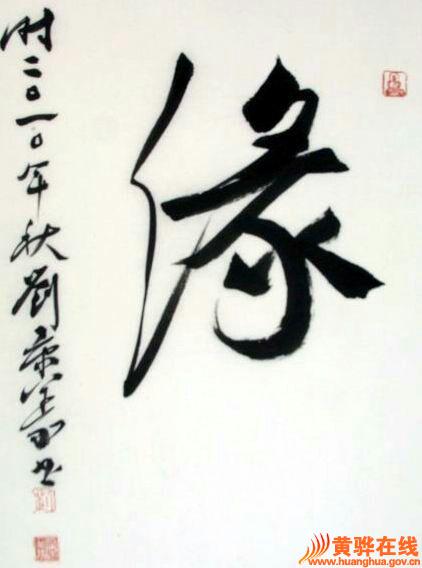 缘
时二〇一〇年秋刘
黄骅在线
www.huanghua.gov.cn